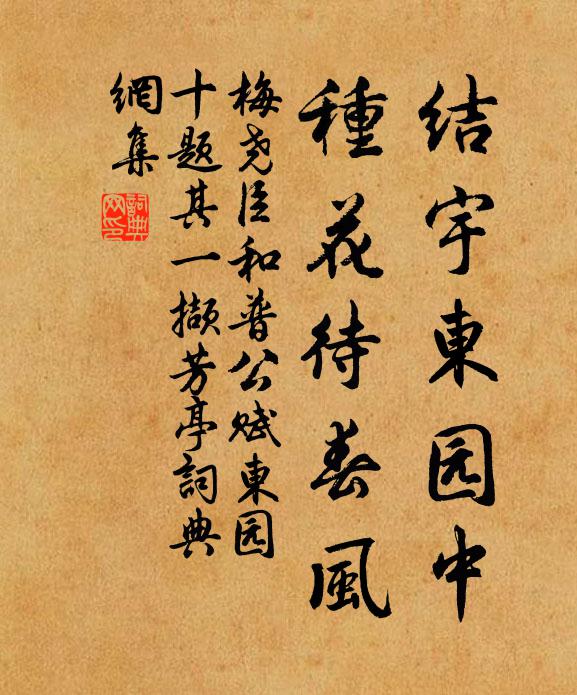 结宇東园中
種花待春風
梅尧臣和普公赋東园
十题其一撷芳亭詞典
網集
詞典网印